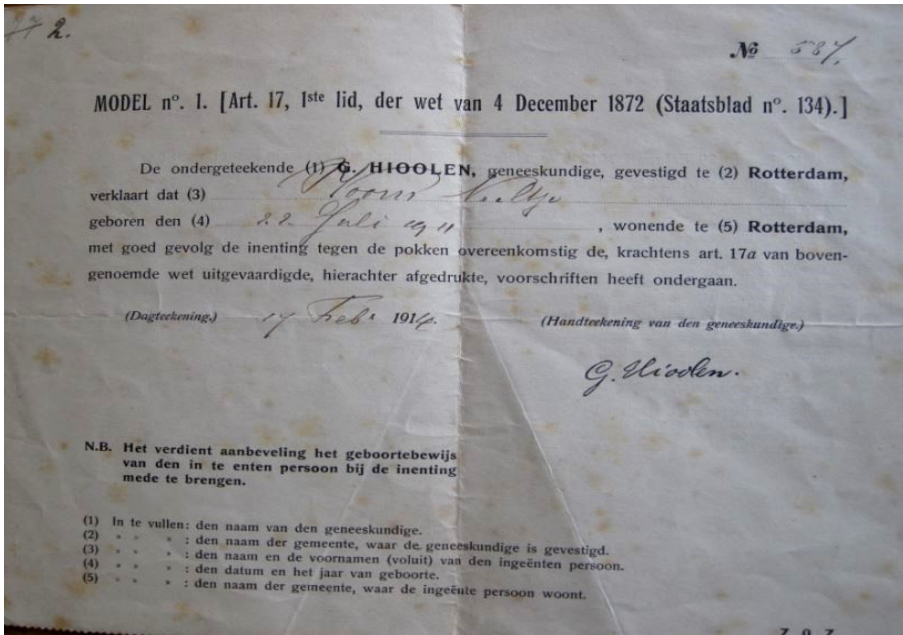 2.
№ 587.
MODEL nº. 1. [Art. 17, 1ste lid, der wet van 4 December 1872 (Staatsblad nº. 134).]
De ondergeteekende (1) G. HIOOLEN, geneeskundige, gevestigd te (2) Rotterdam,
verklaart dat (3) Neeltje
geboren den (4) 22 Juli 1911, wonende te (5) Rotterdam,
met goed gevolg de inenting tegen de pokken overeenkomstig de, krachtens art. 17a van boven-
genoemde wet uitgevaardigde, hierachter afgedrukte, voorschriften heeft ondergaan.
(Dagteekening.) 17 Febr 1914. (Handteekening van den geneeskundige.)
G. Hioolen.
N.B. Het verdient aanbeveling het geboortebewijs
van den in te enten persoon bij de inenting
mede te brengen.
(1) In te vullen: den naam van den geneeskundige.
(2) " " " : den naam der gemeente, waar de geneeskundige is gevestigd.
(3) " " " : den naam en de voornamen (voluit) van den ingeënten persoon.
(4) " " " : den datum en het jaar van geboorte.
(5) " " " : den naam der gemeente, waar de ingeënte persoon woont.